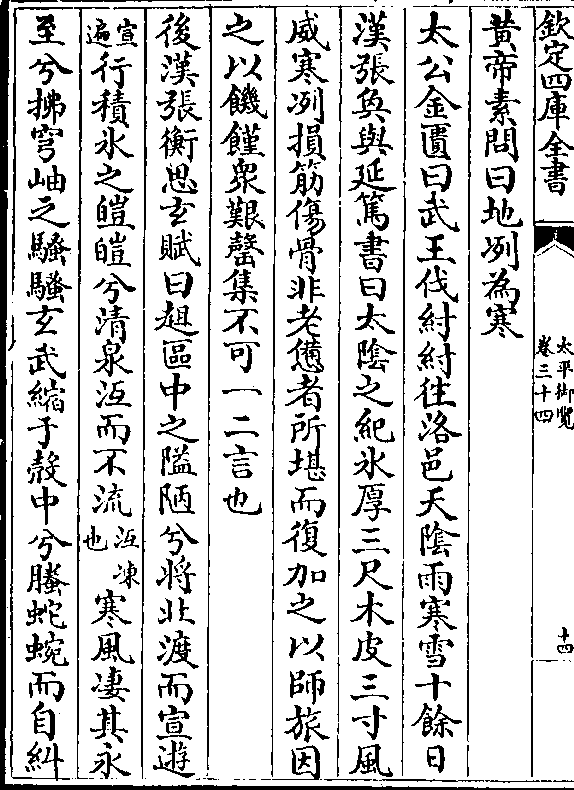 欽定四庫全書
太平御覽
卷三十四
十四
黃帝素問曰地冽為寒
太公金匱曰武王伐紂紂往洛邑天陰雨寒雪十餘日
漢張奐與延篤書曰太陰之紀氷厚三尺木皮三寸風
威寒冽損筋傷骨非老憊者所堪而復加之以師旅因
之以饑饉衆艱罄集不可一二言也
後漢張衡思玄賦曰趄區中之隘陋兮將北渡而宣遊
宣遍行積氷之皚皚兮清泉沍而不流沍凍也寒風凄其永
至兮拂穹岫之騷騷玄武縮于殻中兮螣蛇蜿而自糾